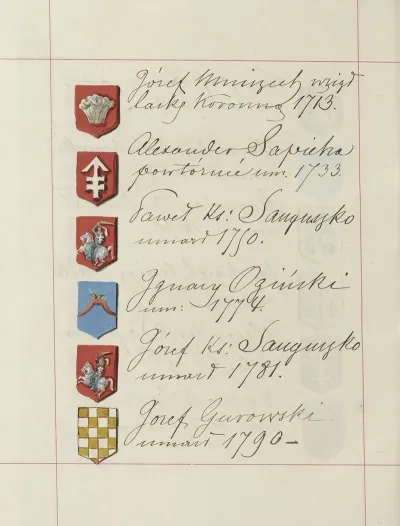 Józef Mniszech wziął
laskę Koronną 1713.
Alexander Sapieha
powtórnie um. 1733.
Paweł Ks: Sanguszko
umarł 1750.
Ignacy Ogiński
um: 1774.
Józef Ks: Sanguszko
umarł 1781.
Józef Gurowski
umarł 1790 –